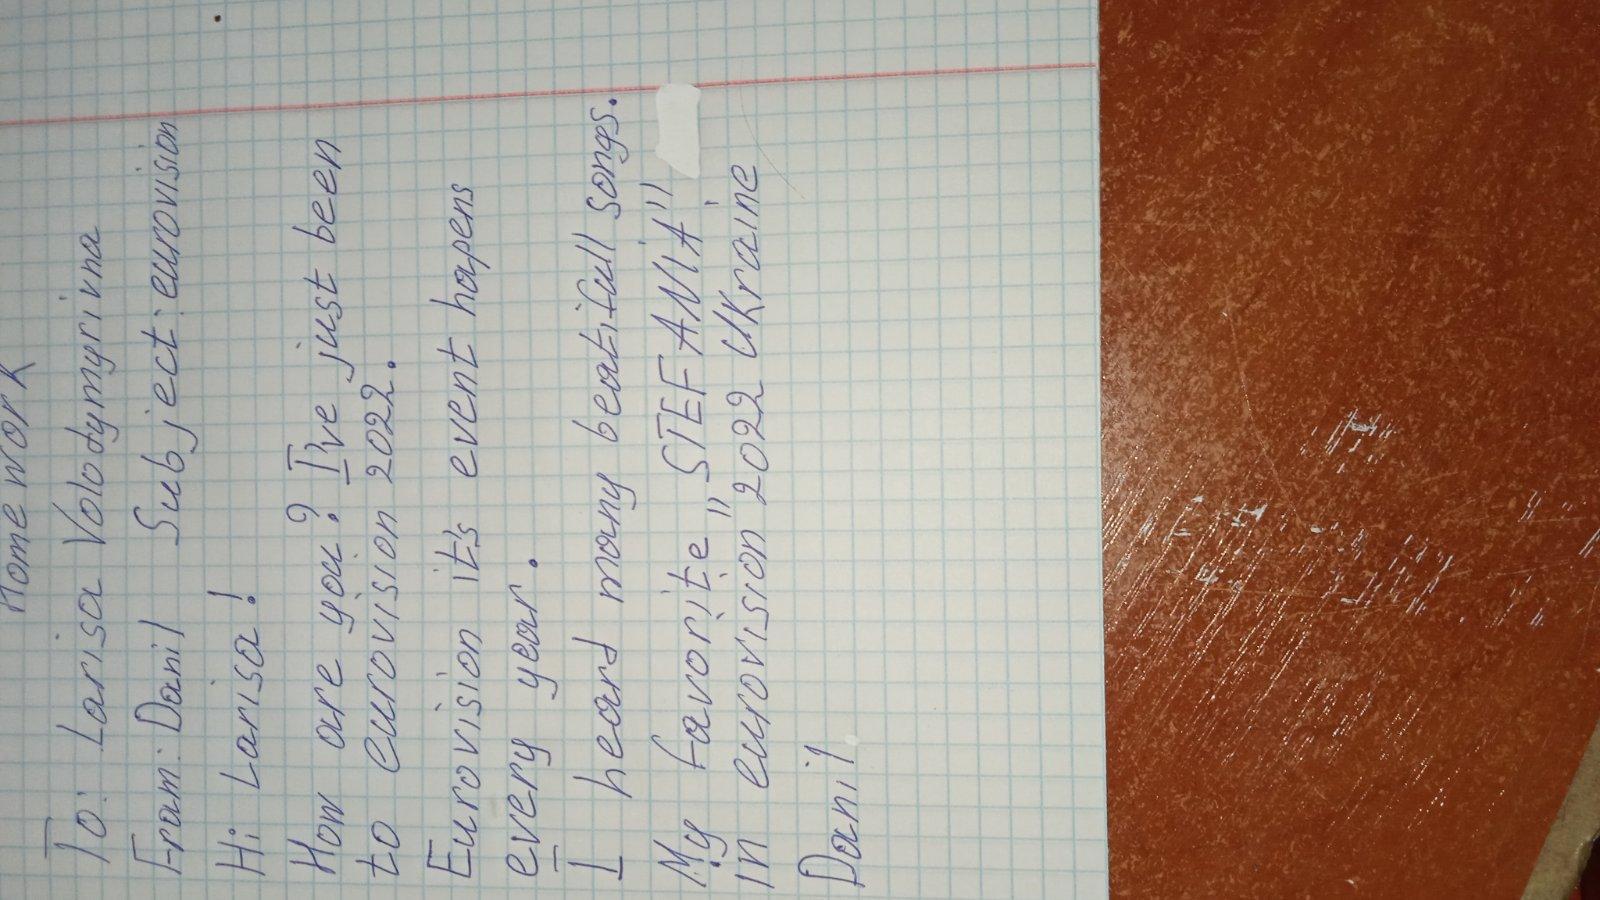 Home work
To: Larisa Volodymyrivna
Fram: Danil Subject: eurovision
Hi Larisa!
How are you? I've just been
to eurovision 2022.
Eurovision it's event hapens
every year.
I heard many beatifull songs.
My favorite "STEFANIA"
in eurovision 2022 Ukraine
Danil